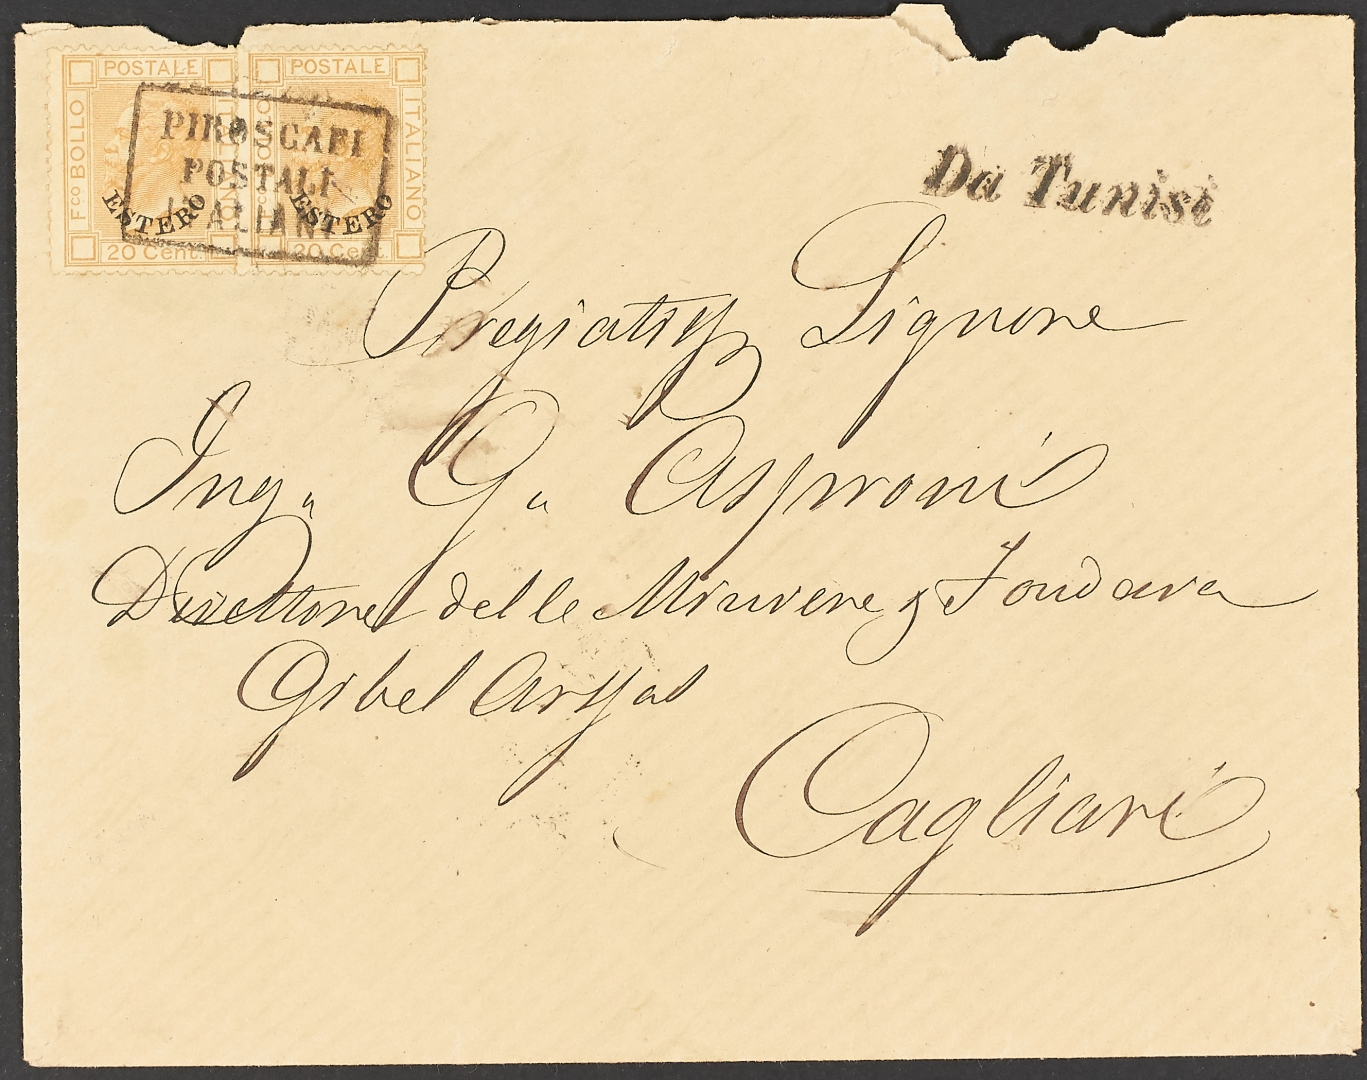 POSTALE POSTALE
Fco BOLLO
ITALIANO
ESTERO ESTERO
20 Cent. 20 Cent.
PIROSCAFI
POSTALI
ITALIANI
Da Tunisi
Signore
Ing. G. Asproni
Direttore delle Miniere, Fondava
Gibel Arsas
Cagliari